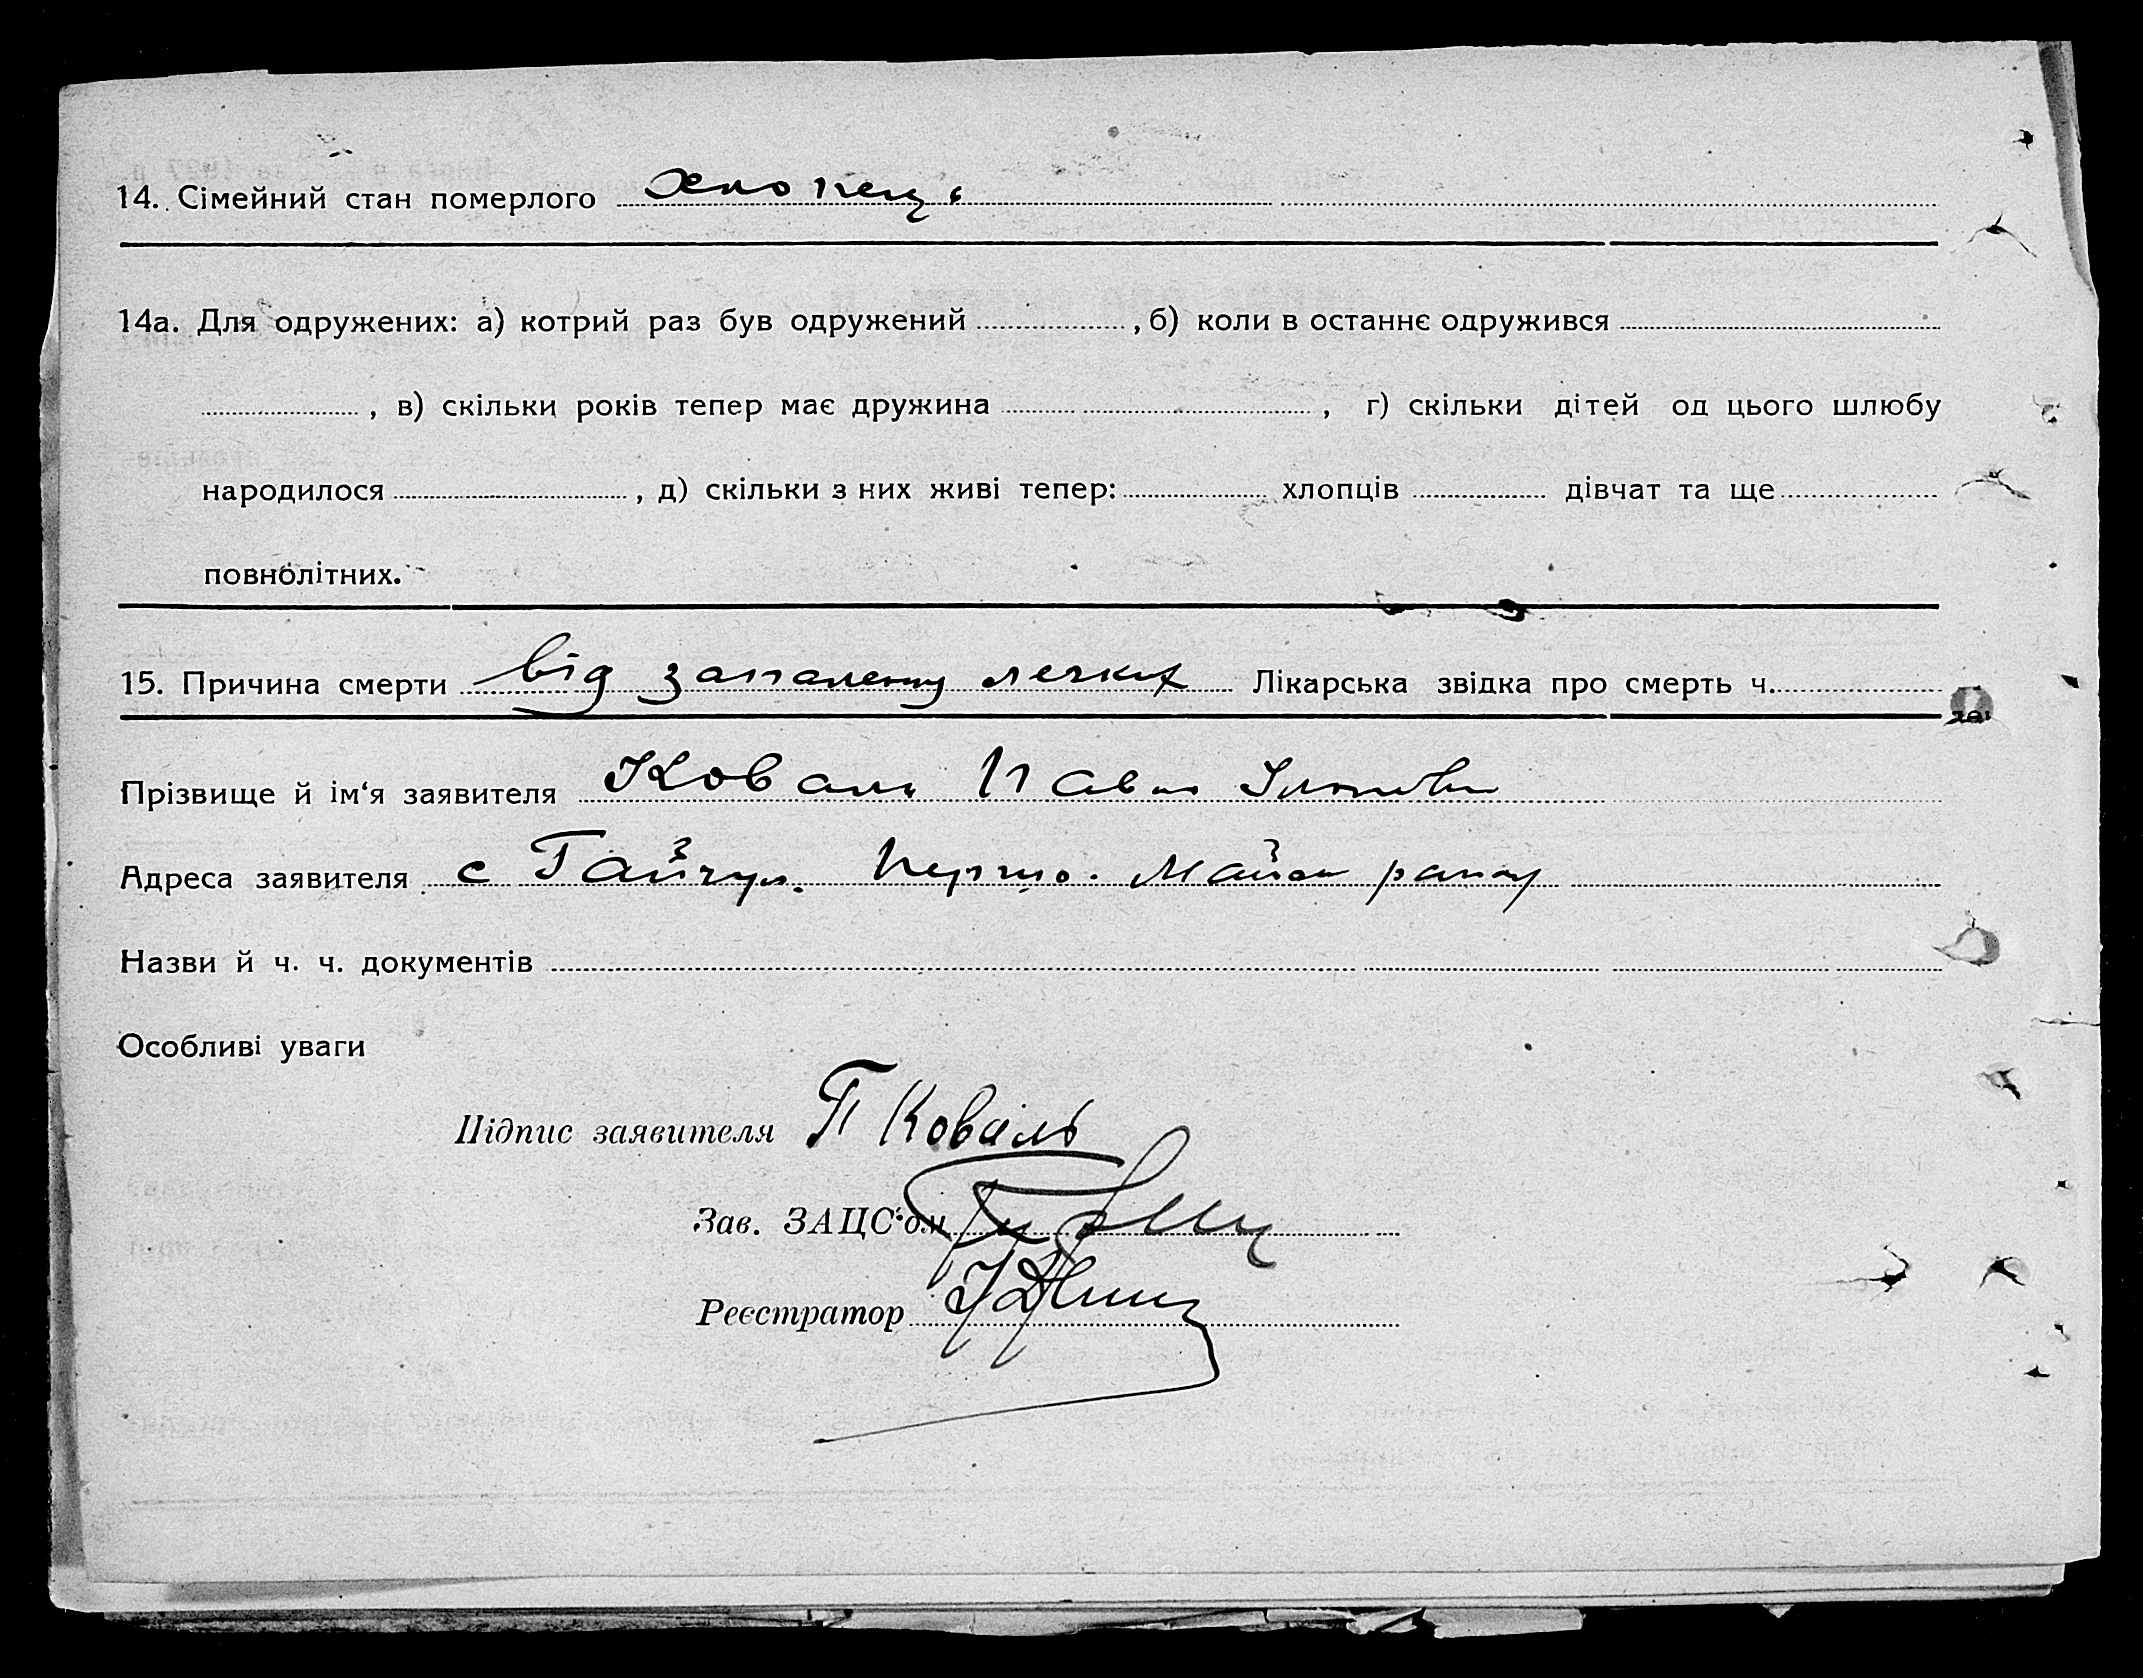 14. Сімейний стан померлого хлопець
14а. Для одружених: а) котрий раз був одружений , б) коли в останнє одружився
, в) скільки років тепер має дружина , г) скільки дітей од цього шлюбу
народилося , д) скільки з них живі тепер: хлопців дівчат та ще
повнолітних.
15. Причина смерти від запаленну легких Лікарська звідка про смерть ч.
Прізвище й ім‘я заявителя Коваль Павло
Адреса заявителя с Гайчул. Першо. Майск району
Назви й ч. ч. документів
Особливі уваги
Підпис заявителя П Коваль
Зав. ЗАЦС‘ом
Реєстратор